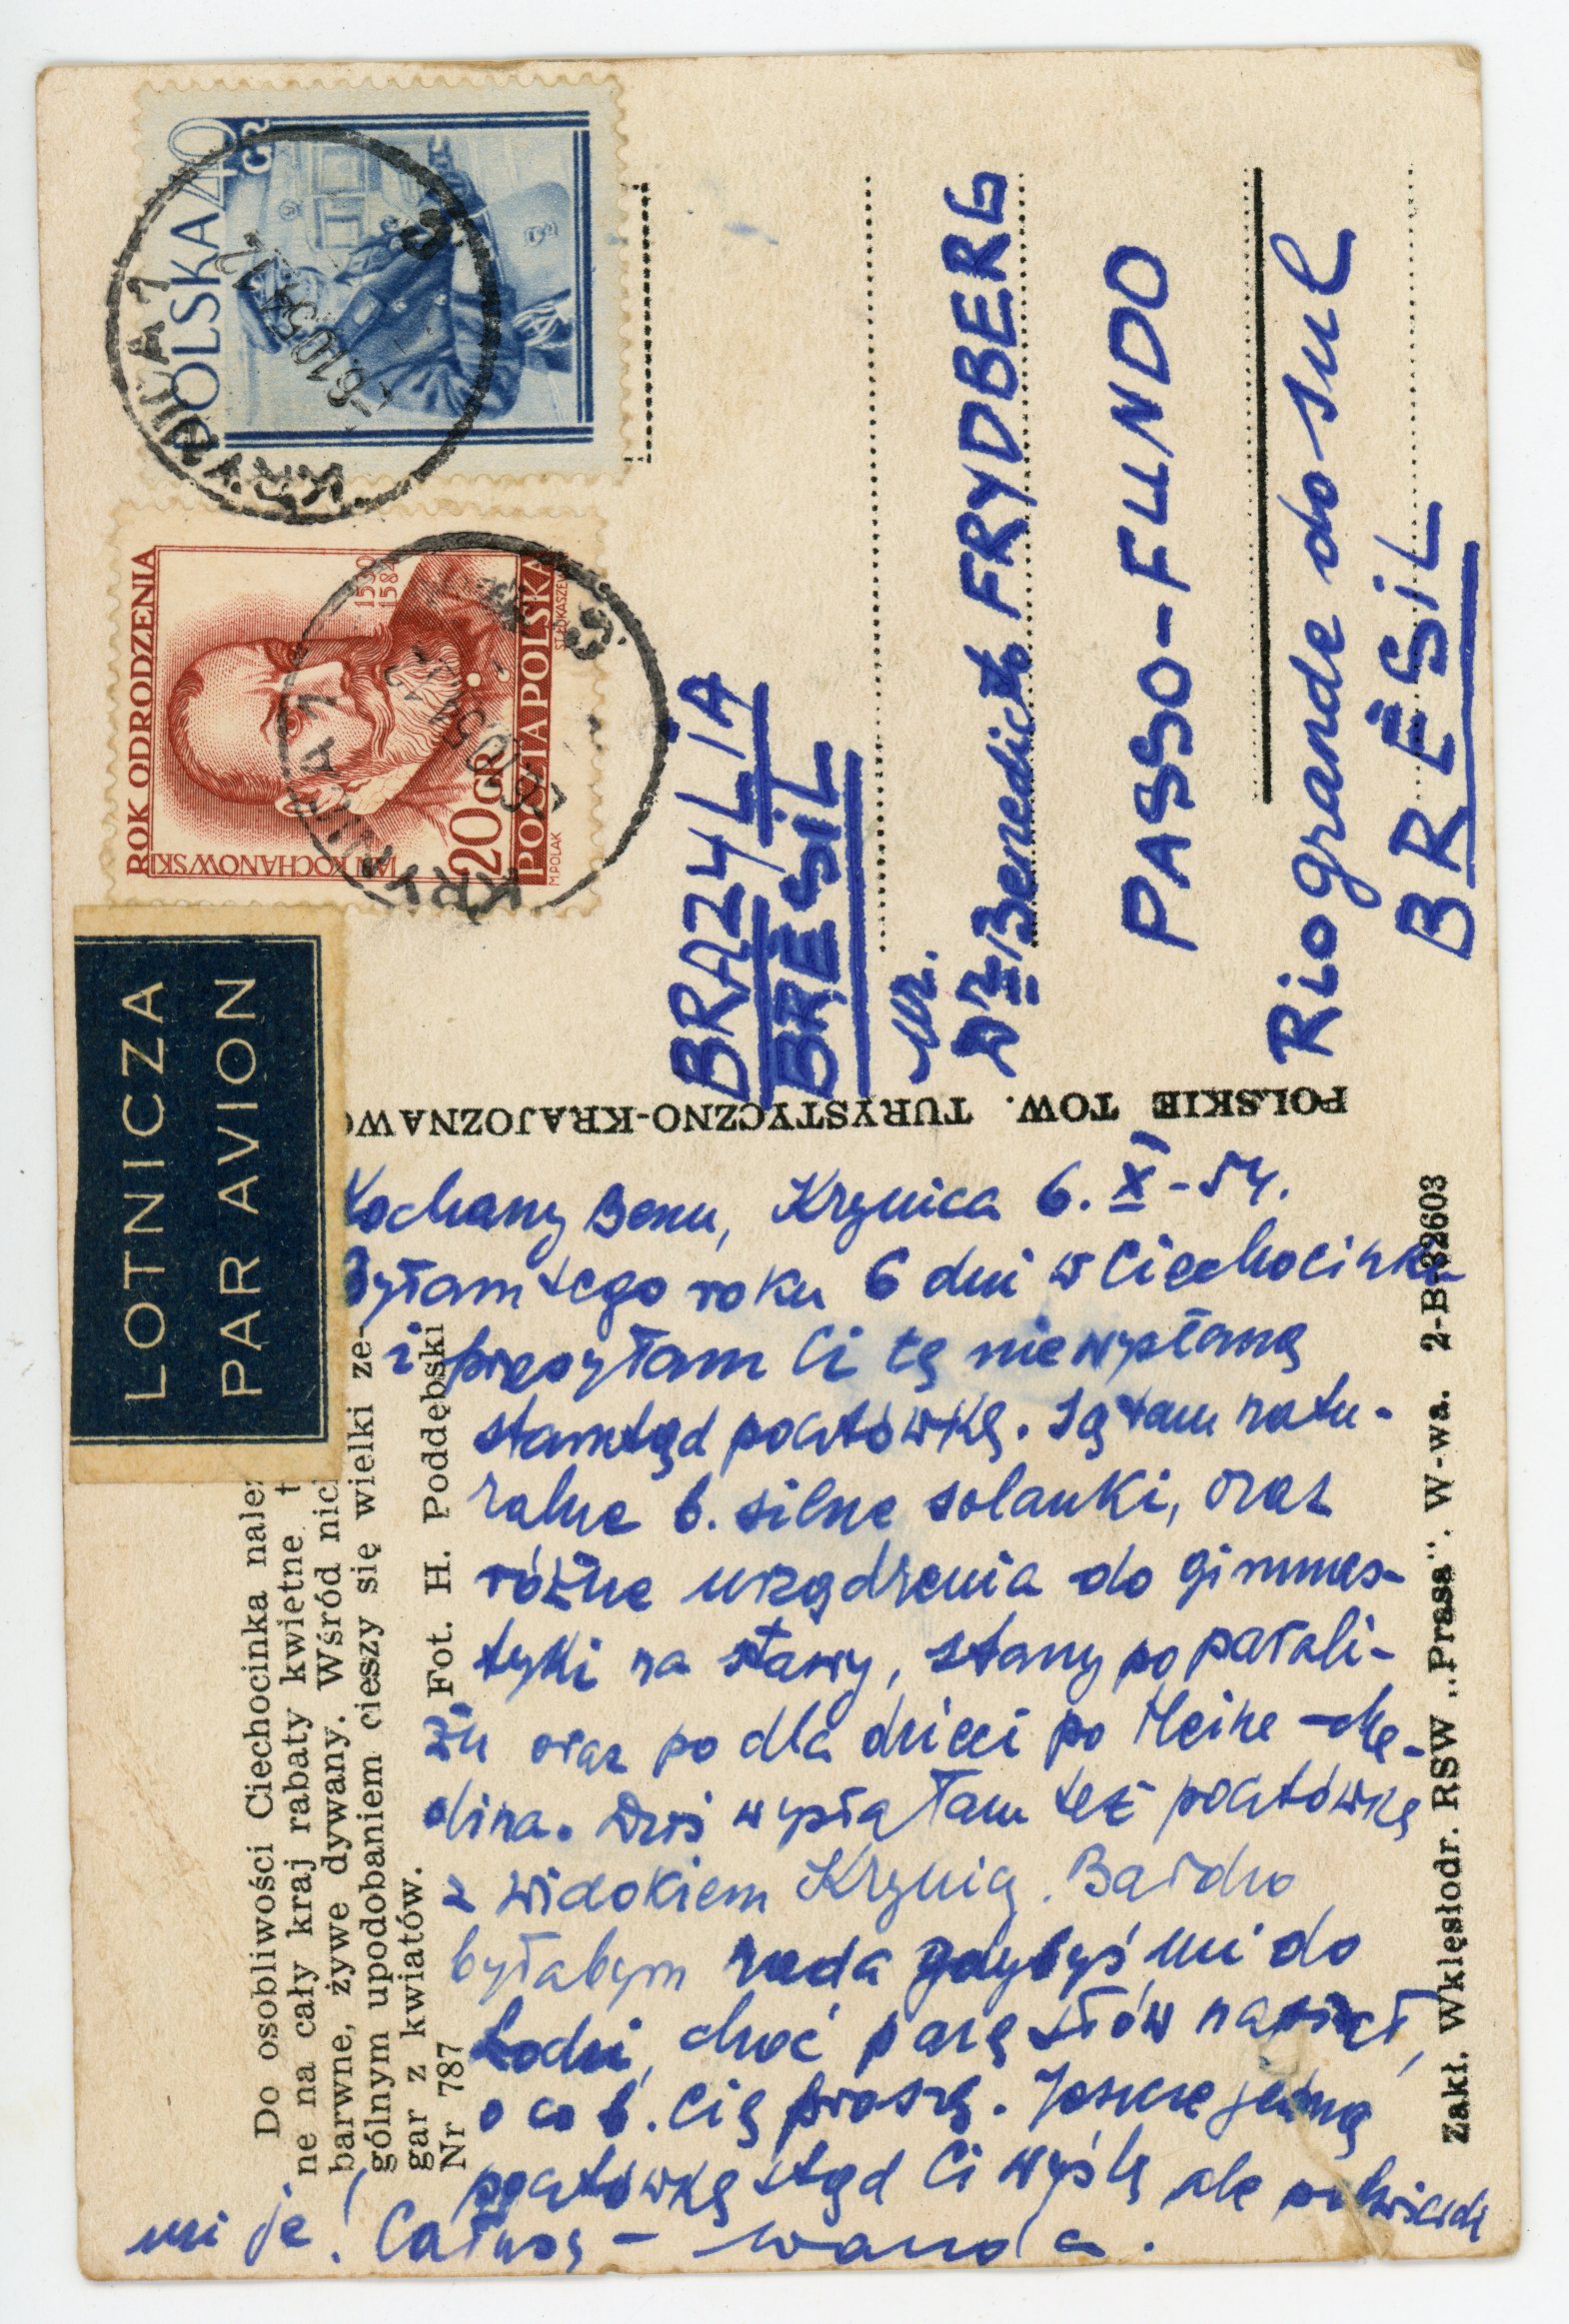 LOTNICZA
PAR AVION
ROK ODRODZENIA
JAN KOCHANOWSKI
1530
1584
20 GR
POCZTA POLSKA
M.POLAK
POLSKA 40 GR
KRYNICA 1
KRYNICA 1
-6.10.54.12
BRAZYLIA
BRÈSIL
Mr.
Dr Benedict FRYDBERG
PASSO-FUNDO
Rio grande do sul
BRÈSIL
POLSKIE TOW. TURYSTYCZNO-KRAJOZNAW
Do osobliwości Ciechocinka nale
ne na cały kraj rabaty kwietne t
barwne, żywe dywany. Wśród nic
gólnym upodobaniem cieszy się wielki ze-
gar z kwiatów.
Nr 787 Fot. H. Poddębski
Kochany Benu, Krynica 6. X-54.
Byłam tego roku 6 dni w Ciechocinku
i przesyłam Ci tę niewysłaną
stamtąd pocztówkę. Są tam natu-
ralne b. silne solanki, oraz
różne urządzenia do gimnas-
tyki na stawy, stany po parali-
żu oraz po dla dzieci po Heine-Me-
dina. Dziś wysłałam też pocztówkę
z widokiem Krynicy. Bardzo
byłabym rada gdybyś mi do
Łodzi, choć parę słów napisał,
o co b. Cię proszę. Jeszcze jedną
pocztówkę stąd Ci wyślę ale potwierdź
mi je! Całuję - Wanda.
Zakł. Wklęsłodr. RSW „Prasa". W-wa. 2-B-32603